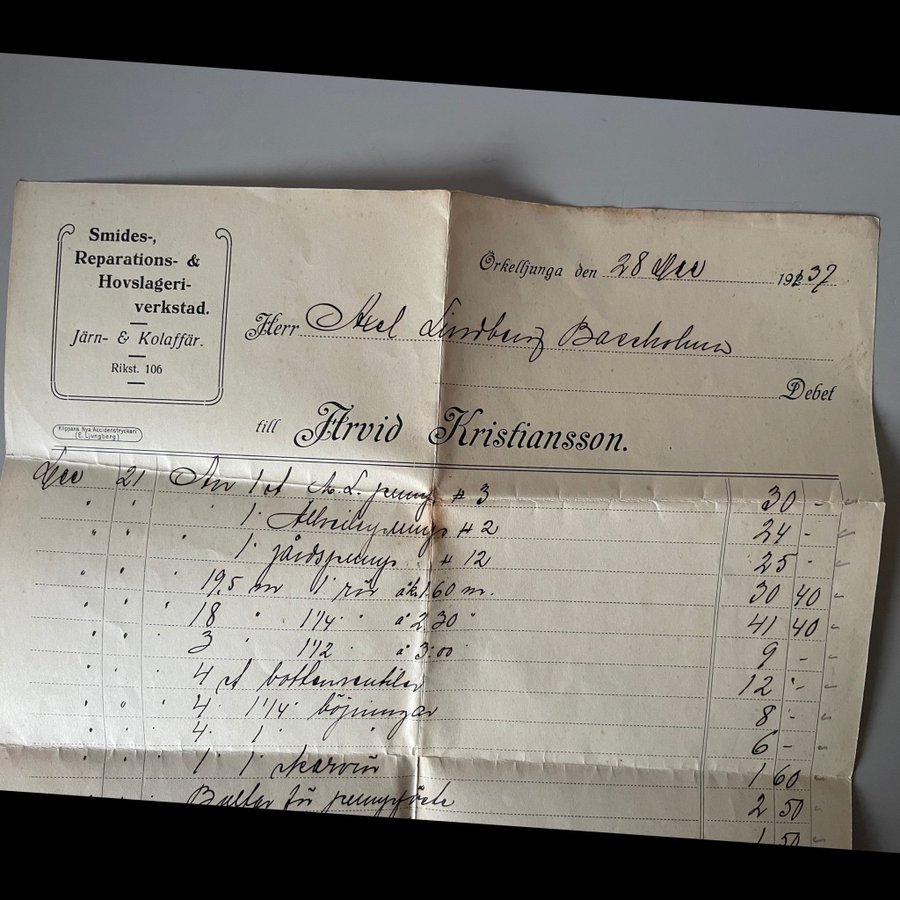 Smides-,
Reparations- &
Hovslageri-
verkstad.
Järn- & Kolaffär.
Rikst. 106
Klippans Nya Accidenstryckeri
(E. Ljungberg)
Örkelljunga den 28 Dec 1937
Herr Axel Lindberg
Debet
till Arvid Kristiansson.
Dec 21 An 1 st A. L. pump # 3 30 -
" " " 1 " # 2 24 -
" " 1 " gårdspump # 12 25 -
" " " 19,5 m 1" rör à kr. 1.60 m. 30 40
" " " 18 " 1 1/4" " à 2.30 " 41 40
" " " 3 " 1 1/2 " à 3.00 9 -
" " 4 st bottenventiler 12 -
" " " 4 " 1 1/4" böjningar 8 -
" " 4 " 1 " " 6 -
" " " 1 " 1 " 1 60
" " Bultar för 2 50
1 50